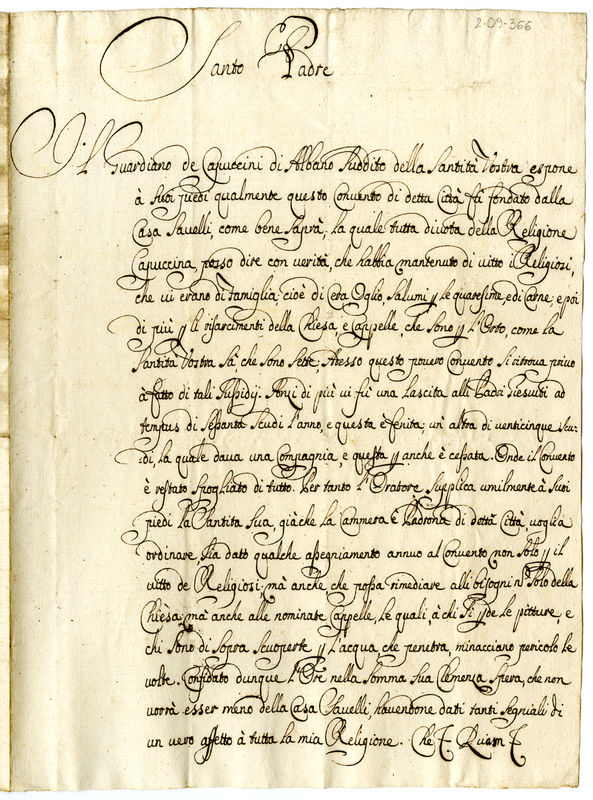 2-09-366
Santo Padre
Il Guardiano de Capuccini di Albano suddito della Santità Vostra espone
à suoi piedi qualmente questo Convento di detta Città fù fondato dalla
Casa Savelli, come bene saprà; la quale tutta divota della Religione
Capuccina, posso dire con verità, che habbia mantenuto di vitto i Religiosi,
che vi erano di famiglia; cioè di Cera Oglio, Salumi p le quaresime, e di Carne; e poi
di più p li risarcimenti della Chiesa, e Cappelle, che sono p l'Orto, come la
Santità Vostra sà che sono sette; Adesso questo povero Convento si ritrova privo
à fatto di tali sussidij. Anzi di più vi fu' una lascita alli Padri Giesuiti ad
tempus di sessanta scudi l'anno, e questa è fenita; un' altra di venticinque scu:
:di, la quale dava una Compagnia, e questa p anche è cessata. Onde il Convento
è restato spogliato di tutto. Per tanto l'Oratore supplica umilmente à suoi
piedi la Santità Sua, giàche la Cammera è Padrona di detta Città, voglia
ordinare sia dato qualche assegniamento annuo al Convento non solo p il
vitto de Religiosi; mà anche, che possa rimediare alli bisogni nõ solo della
Chiesa; mà anche alle nominate Cappelle, le quali, à chi si pde le pitture, e
chi sono di sopra scuoperte p l'acqua che penetra, minacciano pericolo le
volte. Confidato dunque l'Ore nella somma sua Clemenza spera, che non
vorrà esser meno della Casa Savelli, havendone dati tanti segniali di
un vero affetto à tutta la mia Religione. Che